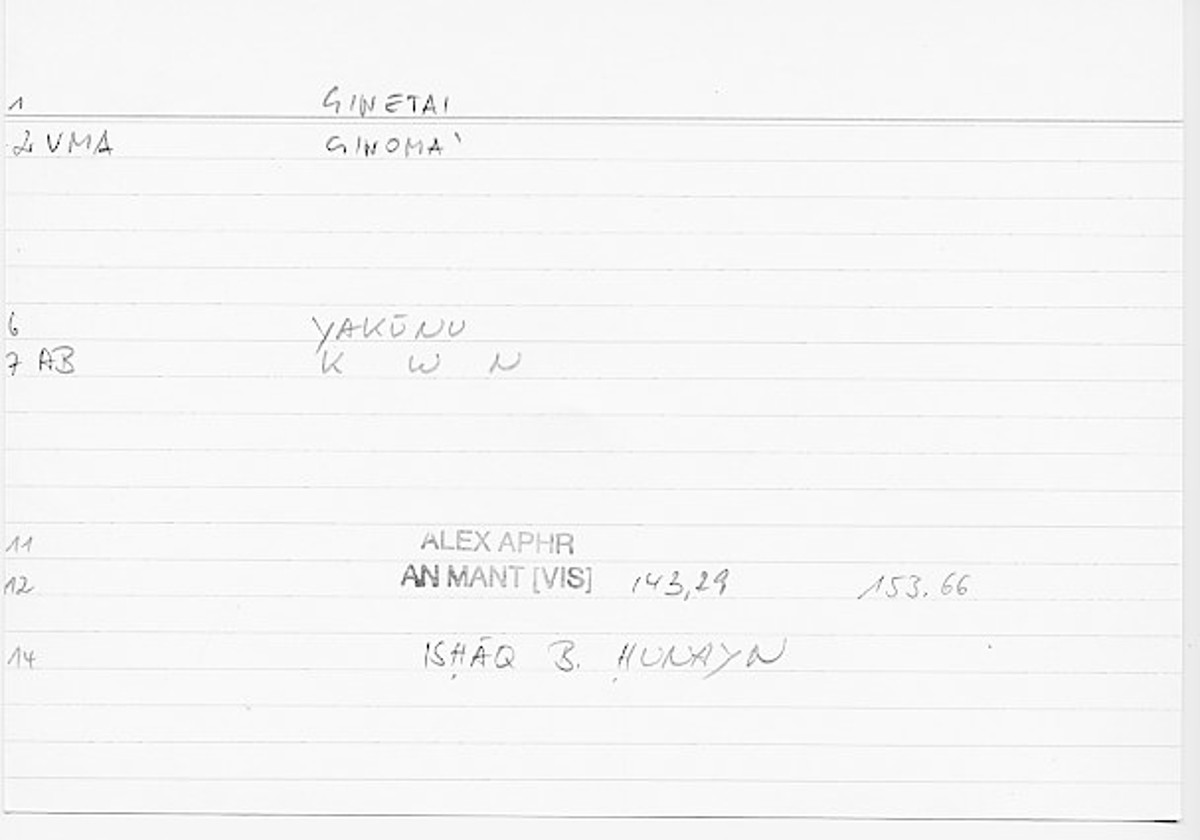 1 GINETAI
2 VMA GINOMA`
6 YAKŪNU
7 AB K W N
11 ALEX APHR
12 AN MANT [VIS] 143,29 153.66
14 ISḤĀQ B. ḤUNAYN